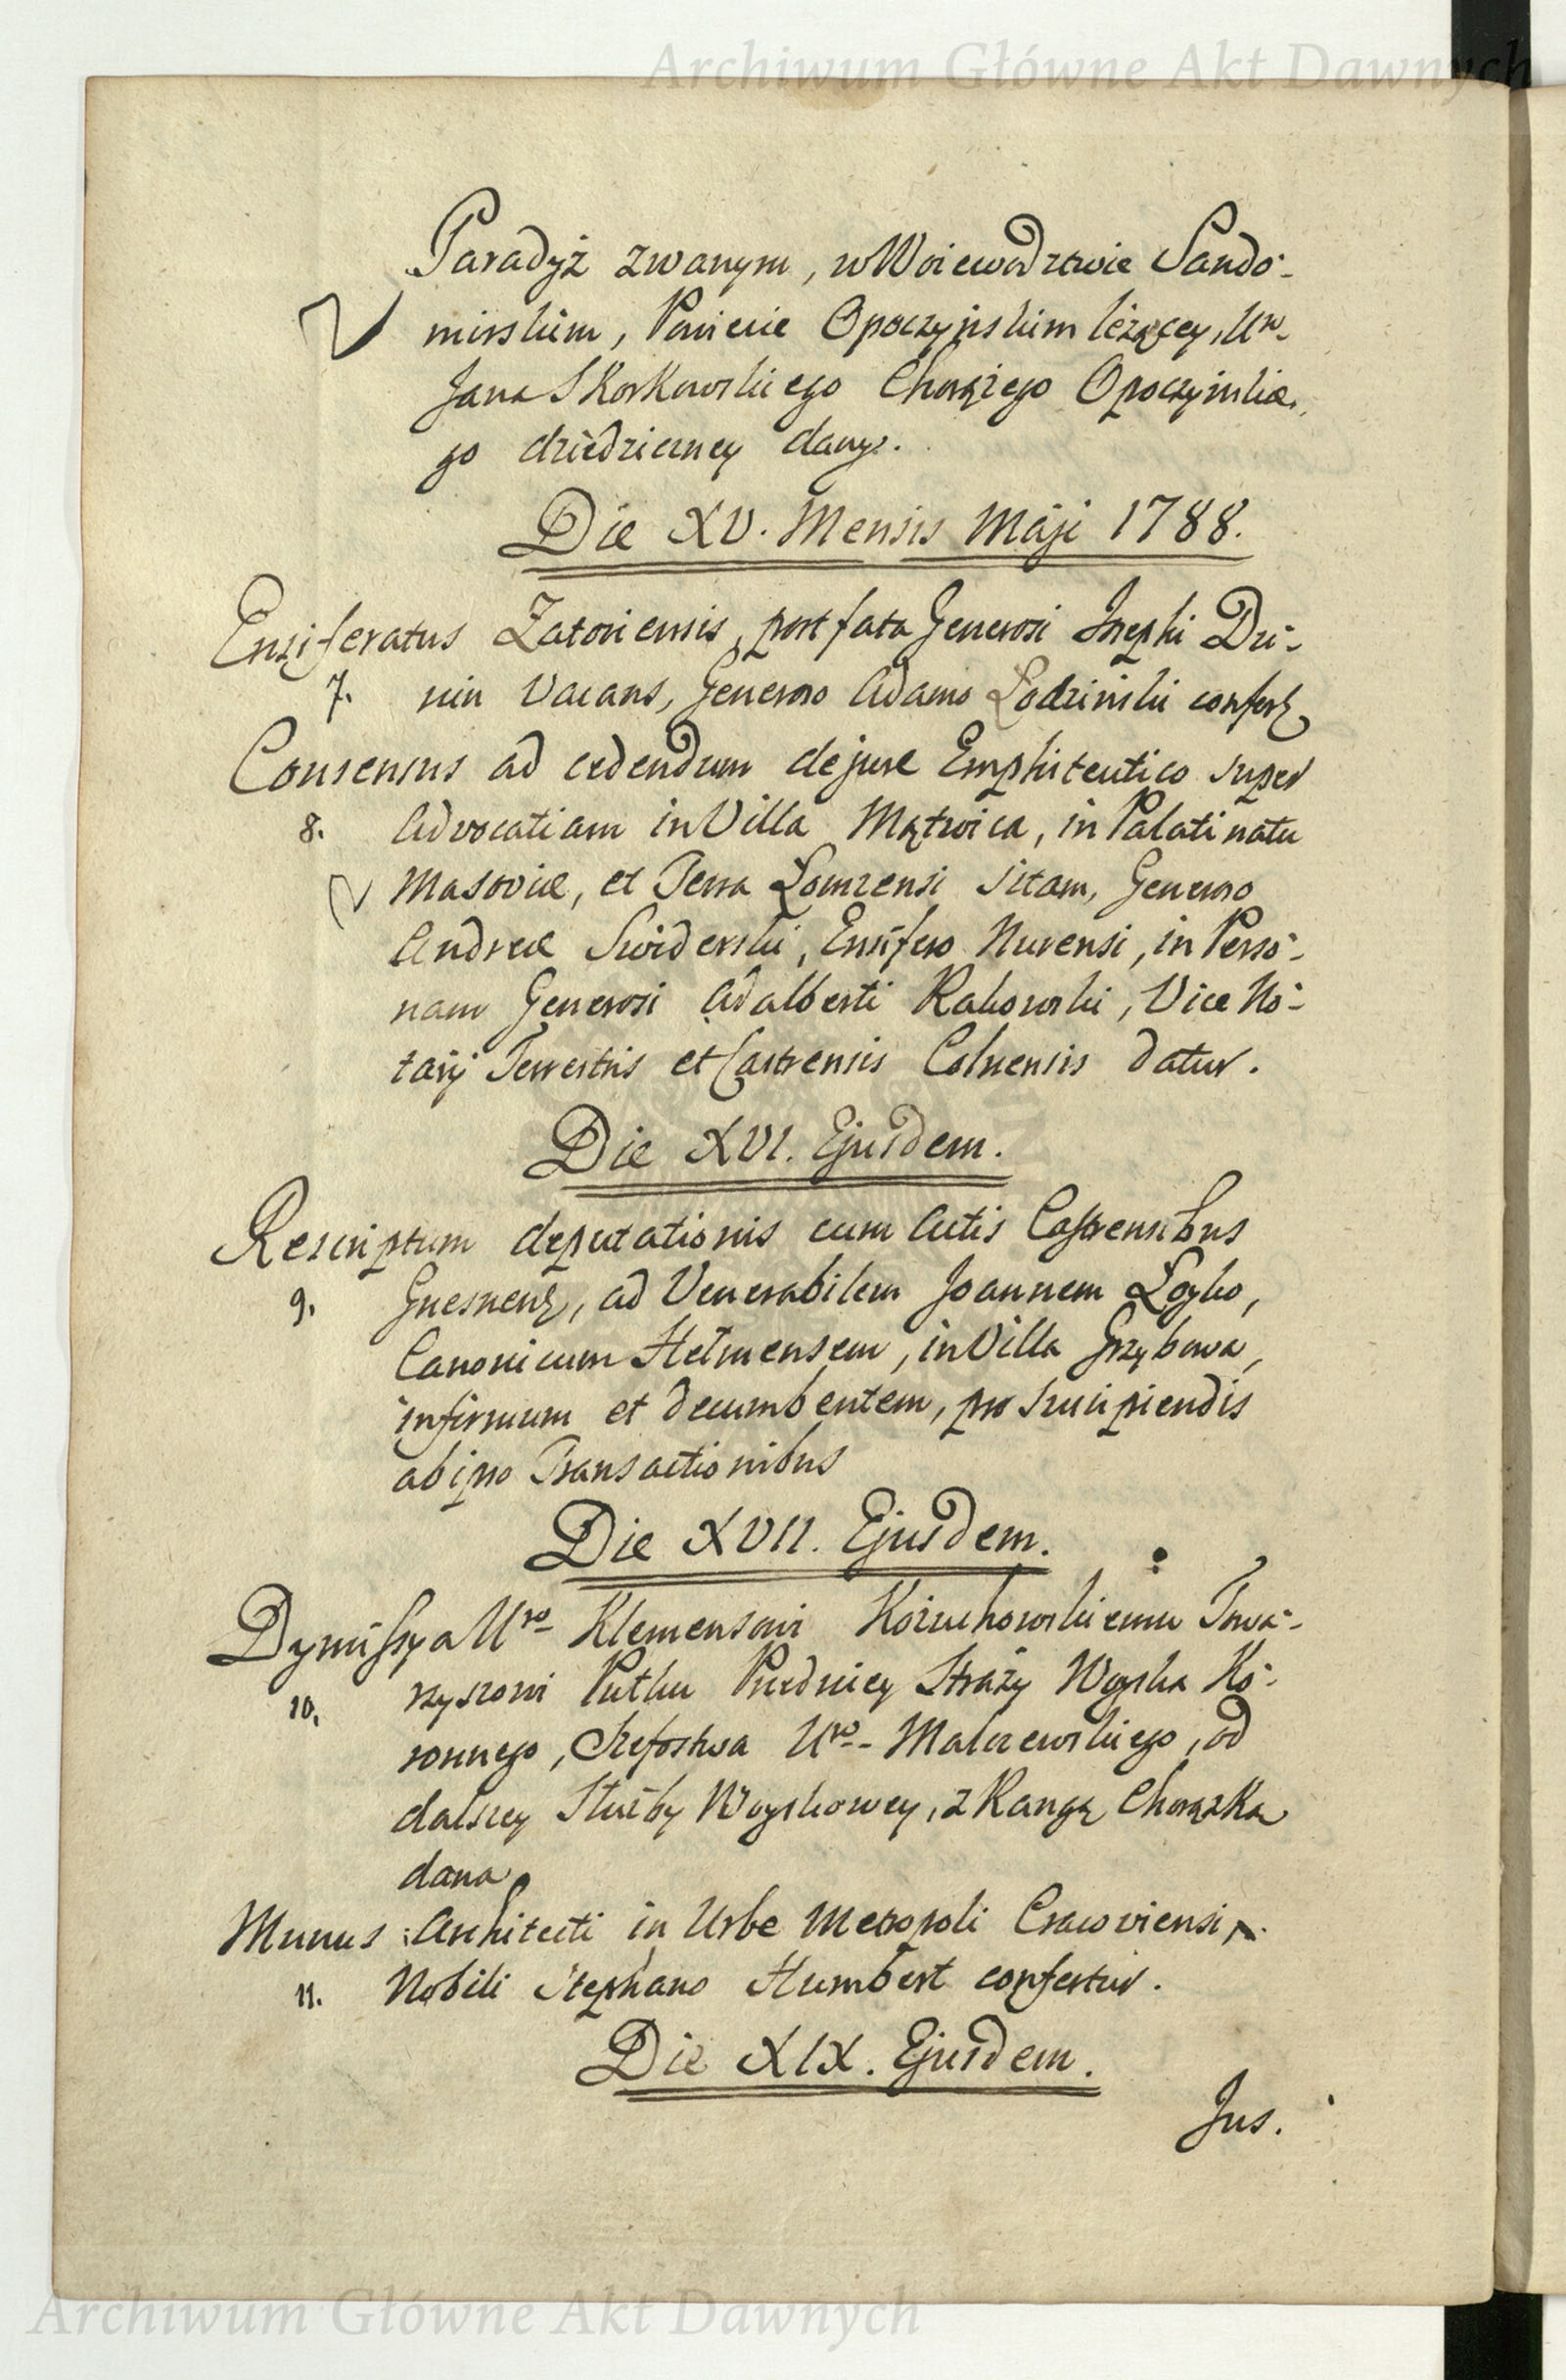 Archiwum Główne Akt Dawnych
Paradyż zwanym, w Woiewodztwie Sando-
mirskim, Powiecie Opoczyńskim leżącey, Ur.
Jana Skorkowskiego Chorążego Opoczyńskie-
go dziedziczney dany.
Die XV. Mensis Maji 1788.
Ensiferatus Zatoriensis, post fata Generosi Josephi Du-
7. nin Vacans, Generoso Adamo Łodziński confert
Consensus ad cedendum de jure Emphiteutico super
8. Advocatiam in Villa Mątwica, in Palatinatu
Masoviæ, et Terra Łomzensi sitam, Generoso
Andreæ Swiderski, Ensifero Nurensi, in Perso-
nam Generosi Adalberti Rakowski, Vice No-
tarij Terrestris et Castrensis Colnensis datur.
Die XVI. Ejusdem.
Rescriptum deputationis cum Actis Castrensibus
9. Gnesnens, ad Venerabilem Joannem Łoyko,
Canonicum Helmensem, in Villa Grzybowa,
infirmum et decumbentem, pro suscipiendis
ab ipso Transactionibus
Die XVII. Ejusdem.
Dymissya Uro Klemensowi Kożuchowskiemu Towa-
10. rzyszowi Pułku Przedniey Straży Woyska Ko-
ronnego, Szefostwa Uro Malczewskiego, od
dalszey Służby Woyskowey, z Rangą Chorążka
dana
Munus Architecti in Urbe Metropoli Cracoviensi,
11. Nobili Stephano Humbert confertur.
Die XIX. Ejusdem.
Jus.
Archiwum Główne Akt Dawnych